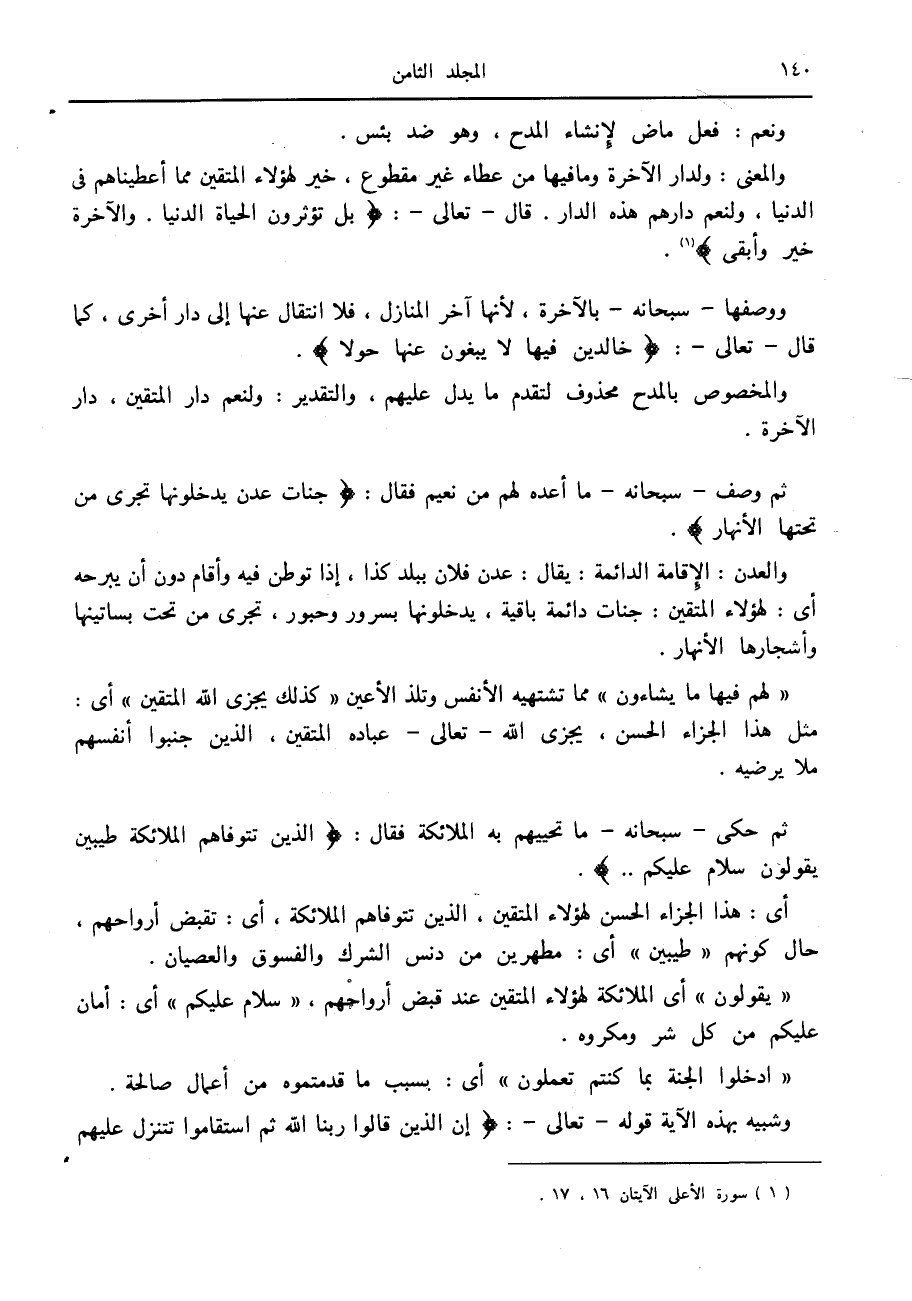 ١٤٠ المجلد الثامن
ونعم : فعل ماض لإنشاء المدح ، وهو ضد بئس .
والمعنى : ولدار الآخرة ومافيها من عطاء غير مقطوع ، خير لهؤلاء المتقين مما أعطيناهم فى
الدنيا ، ولنعم دارهم هذه الدار . قال – تعالى – : ﴿ بل تؤثرون الحياة الدنيا . والآخرة
خير وأبقى ﴾(١) .
ووصفها – سبحانه – بالآخرة ، لأنها آخر المنازل ، فلا انتقال عنها إلى دار أخرى ، كما
قال – تعالى – : ﴿ خالدين فيها لا يبغون عنها حولا ﴾ .
والمخصوص بالمدح محذوف لتقدم ما يدل عليهم ، والتقدير : ولنعم دار المتقين ، دار
الآخرة .
ثم وصف – سبحانه – ما أعده لهم من نعيم فقال : ﴿ جنات عدن يدخلونها تجرى من
تحتها الأنهار ﴾ .
والعدن : الإقامة الدائمة : يقال : عدن فلان ببلد كذا ، إذا توطن فيه وأقام دون أن يبرحه
أى : لهؤلاء المتقين : جنات دائمة باقية ، يدخلونها بسرور وحبور ، تجرى من تحت بساتينها
وأشجارها الأنهار .
« لهم فيها ما يشاءون » مما تشتهيه الأنفس وتلذ الأعين « كذلك يجزى الله المتقين » أى :
مثل هذا الجزاء الحسن ، يجزى الله – تعالى – عباده المتقين ، الذين جنبوا أنفسهم
ملا يرضيه .
ثم حكى – سبحانه – ما تحييهم به الملائكة فقال : ﴿ الذين تتوفاهم الملائكة طيبين
يقولون سلام عليكم .. ﴾ .
أى : هذا الجزاء الحسن لهؤلاء المتقين ، الذين تتوفاهم الملائكة ، أى : تقبض أرواحهم ،
حال كونهم « طيبين » أى : مطهرين من دنس الشرك والفسوق والعصيان .
« يقولون » أى الملائكة لهؤلاء المتقين عند قبض أرواحهم ، « سلام عليكم » أى : أمان
عليكم من كل شر ومكروه .
« ادخلوا الجنة بما كنتم تعملون » أى : بسبب ما قدمتموه من أعمال صالحة .
وشبيه بهذه الآية قوله – تعالى – : ﴿ إن الذين قالوا ربنا الله ثم استقاموا تتنزل عليهم
( ١ ) سورة الأعلى الآيتان ١٦ ، ١٧ .